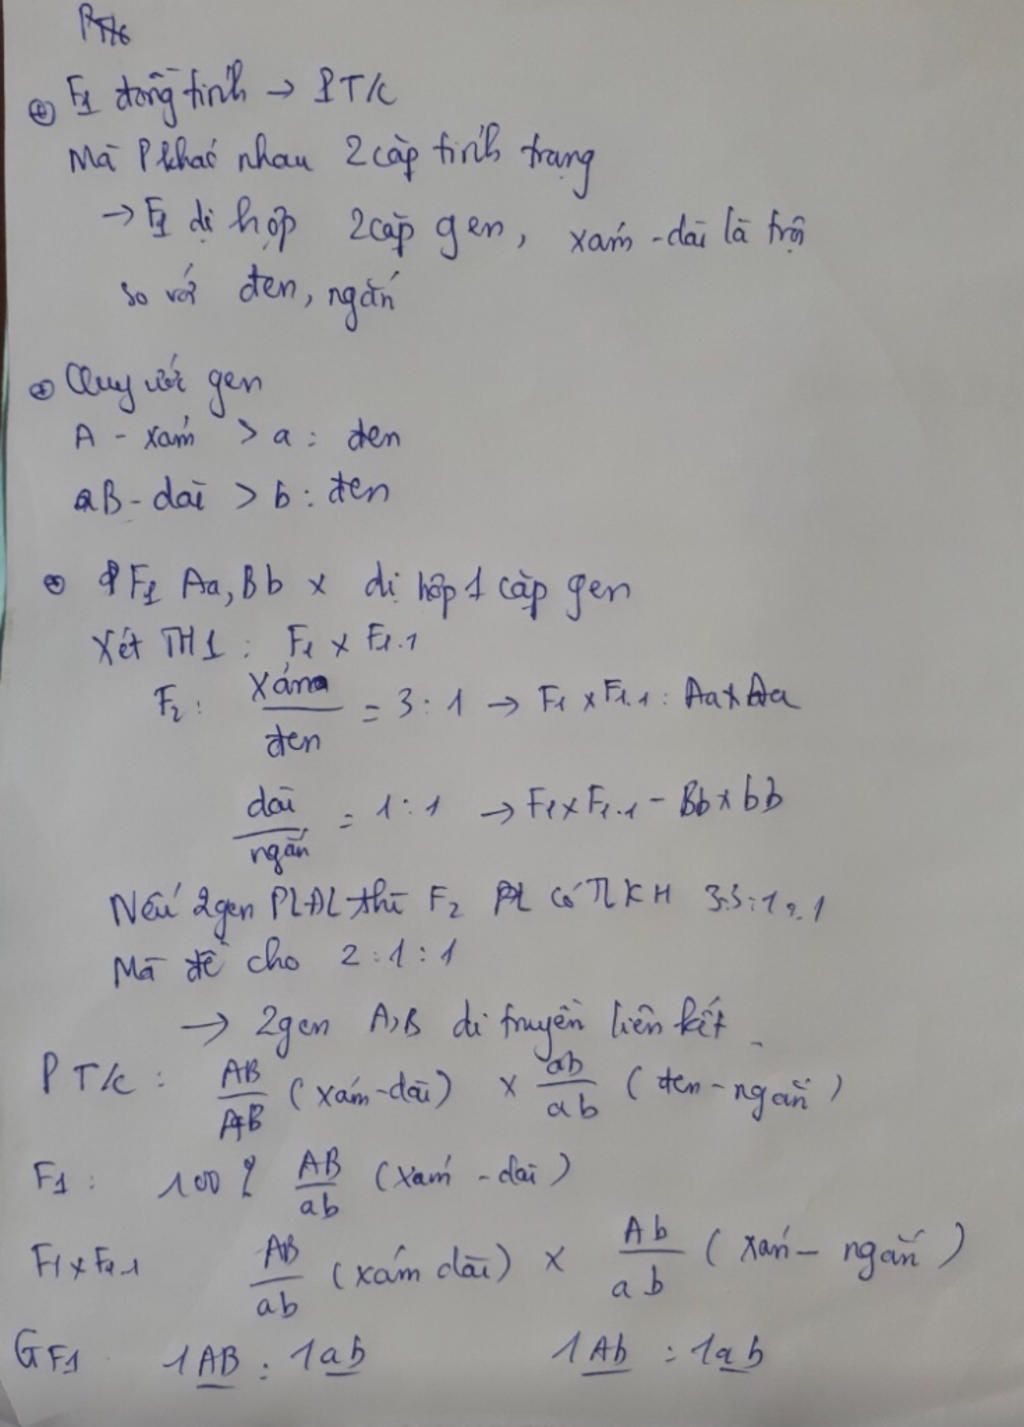 ⊕ F1 đồng tính → PT/c
Mà P khác nhau 2 cặp tính trạng
→ F1 dị hợp 2 cặp gen, xám - dài là trội
so với đen, ngắn
⊕ Quy ước gen
A - xám > a : đen
B - dài > b : đen
⊕ F1 Aa, Bb x dị hợp 1 cặp gen
Xét TH1 : F1 x F1.1
F2 : xám / đen = 3 : 1 → F1 x F1.1 : Aa x Aa
dài / ngắn = 1 : 1 → F1 x F1.1 - Bb x bb
Nếu 2 gen PLĐL thì F2 có TLKH 3:3:1:1
Mà đề cho 2 : 1 : 1
→ 2 gen A, B di truyền liên kết
P T/c : AB/AB (xám - dài) x ab/ab (đen - ngắn)
F1 : 100% AB/ab (xám - dài)
F1 x F1.1 AB/ab (xám dài) x Ab/ab (xám - ngắn)
GF1 1AB : 1ab 1Ab : 1ab